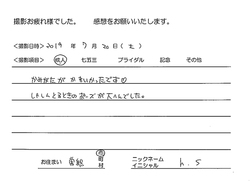 撮影お疲れ様でした。 感想をお願いいたします。
<撮影日時> 2019 年 7 月 20 日 (土)
<撮影項目> 成人 七五三 ブライダル 記念 その他
かみがたが かわいかったです♡
しゃしんとるときのポーズが大へんでした。
お住まい 愛総 市 町 村 ニックネーム イニシャル h.S